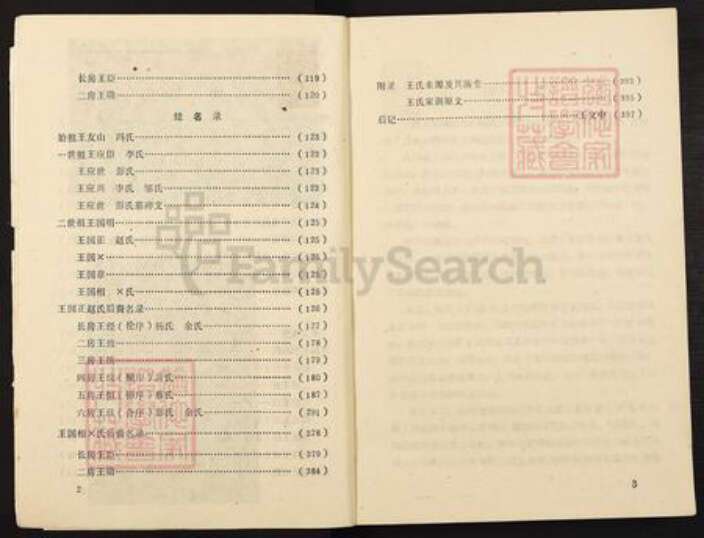 长房王臣……(119)
二房王勋……(120)
世名录
始祖王友山 冯氏……(123)
一世祖王应俗 李氏……(123)
王应世 彭氏……(123)
王应兴 李氏 邹氏……(123)
王应世 彭氏墓碑文……(124)
二世祖王国相……(125)
王国正 赵氏……(125)
王国×……(125)
王国章……(125)
王国相 ×氏……(126)
王国正赵氏后裔名录……(126)
长房王经(伦序)杨氏 余氏……(177)
二房王……(178)
三房王……(179)
四房王 氏……(180)
五房王 蔡氏……(187)
六房王 彭氏 余氏……(201)
王国相×氏后裔名录……(378)
长房王臣……(379)
二房王勋……(384)
2
附录 王氏来源及其……(393)
王氏家训原文……(395)
后记……王文中(397)
3
FamilySearch